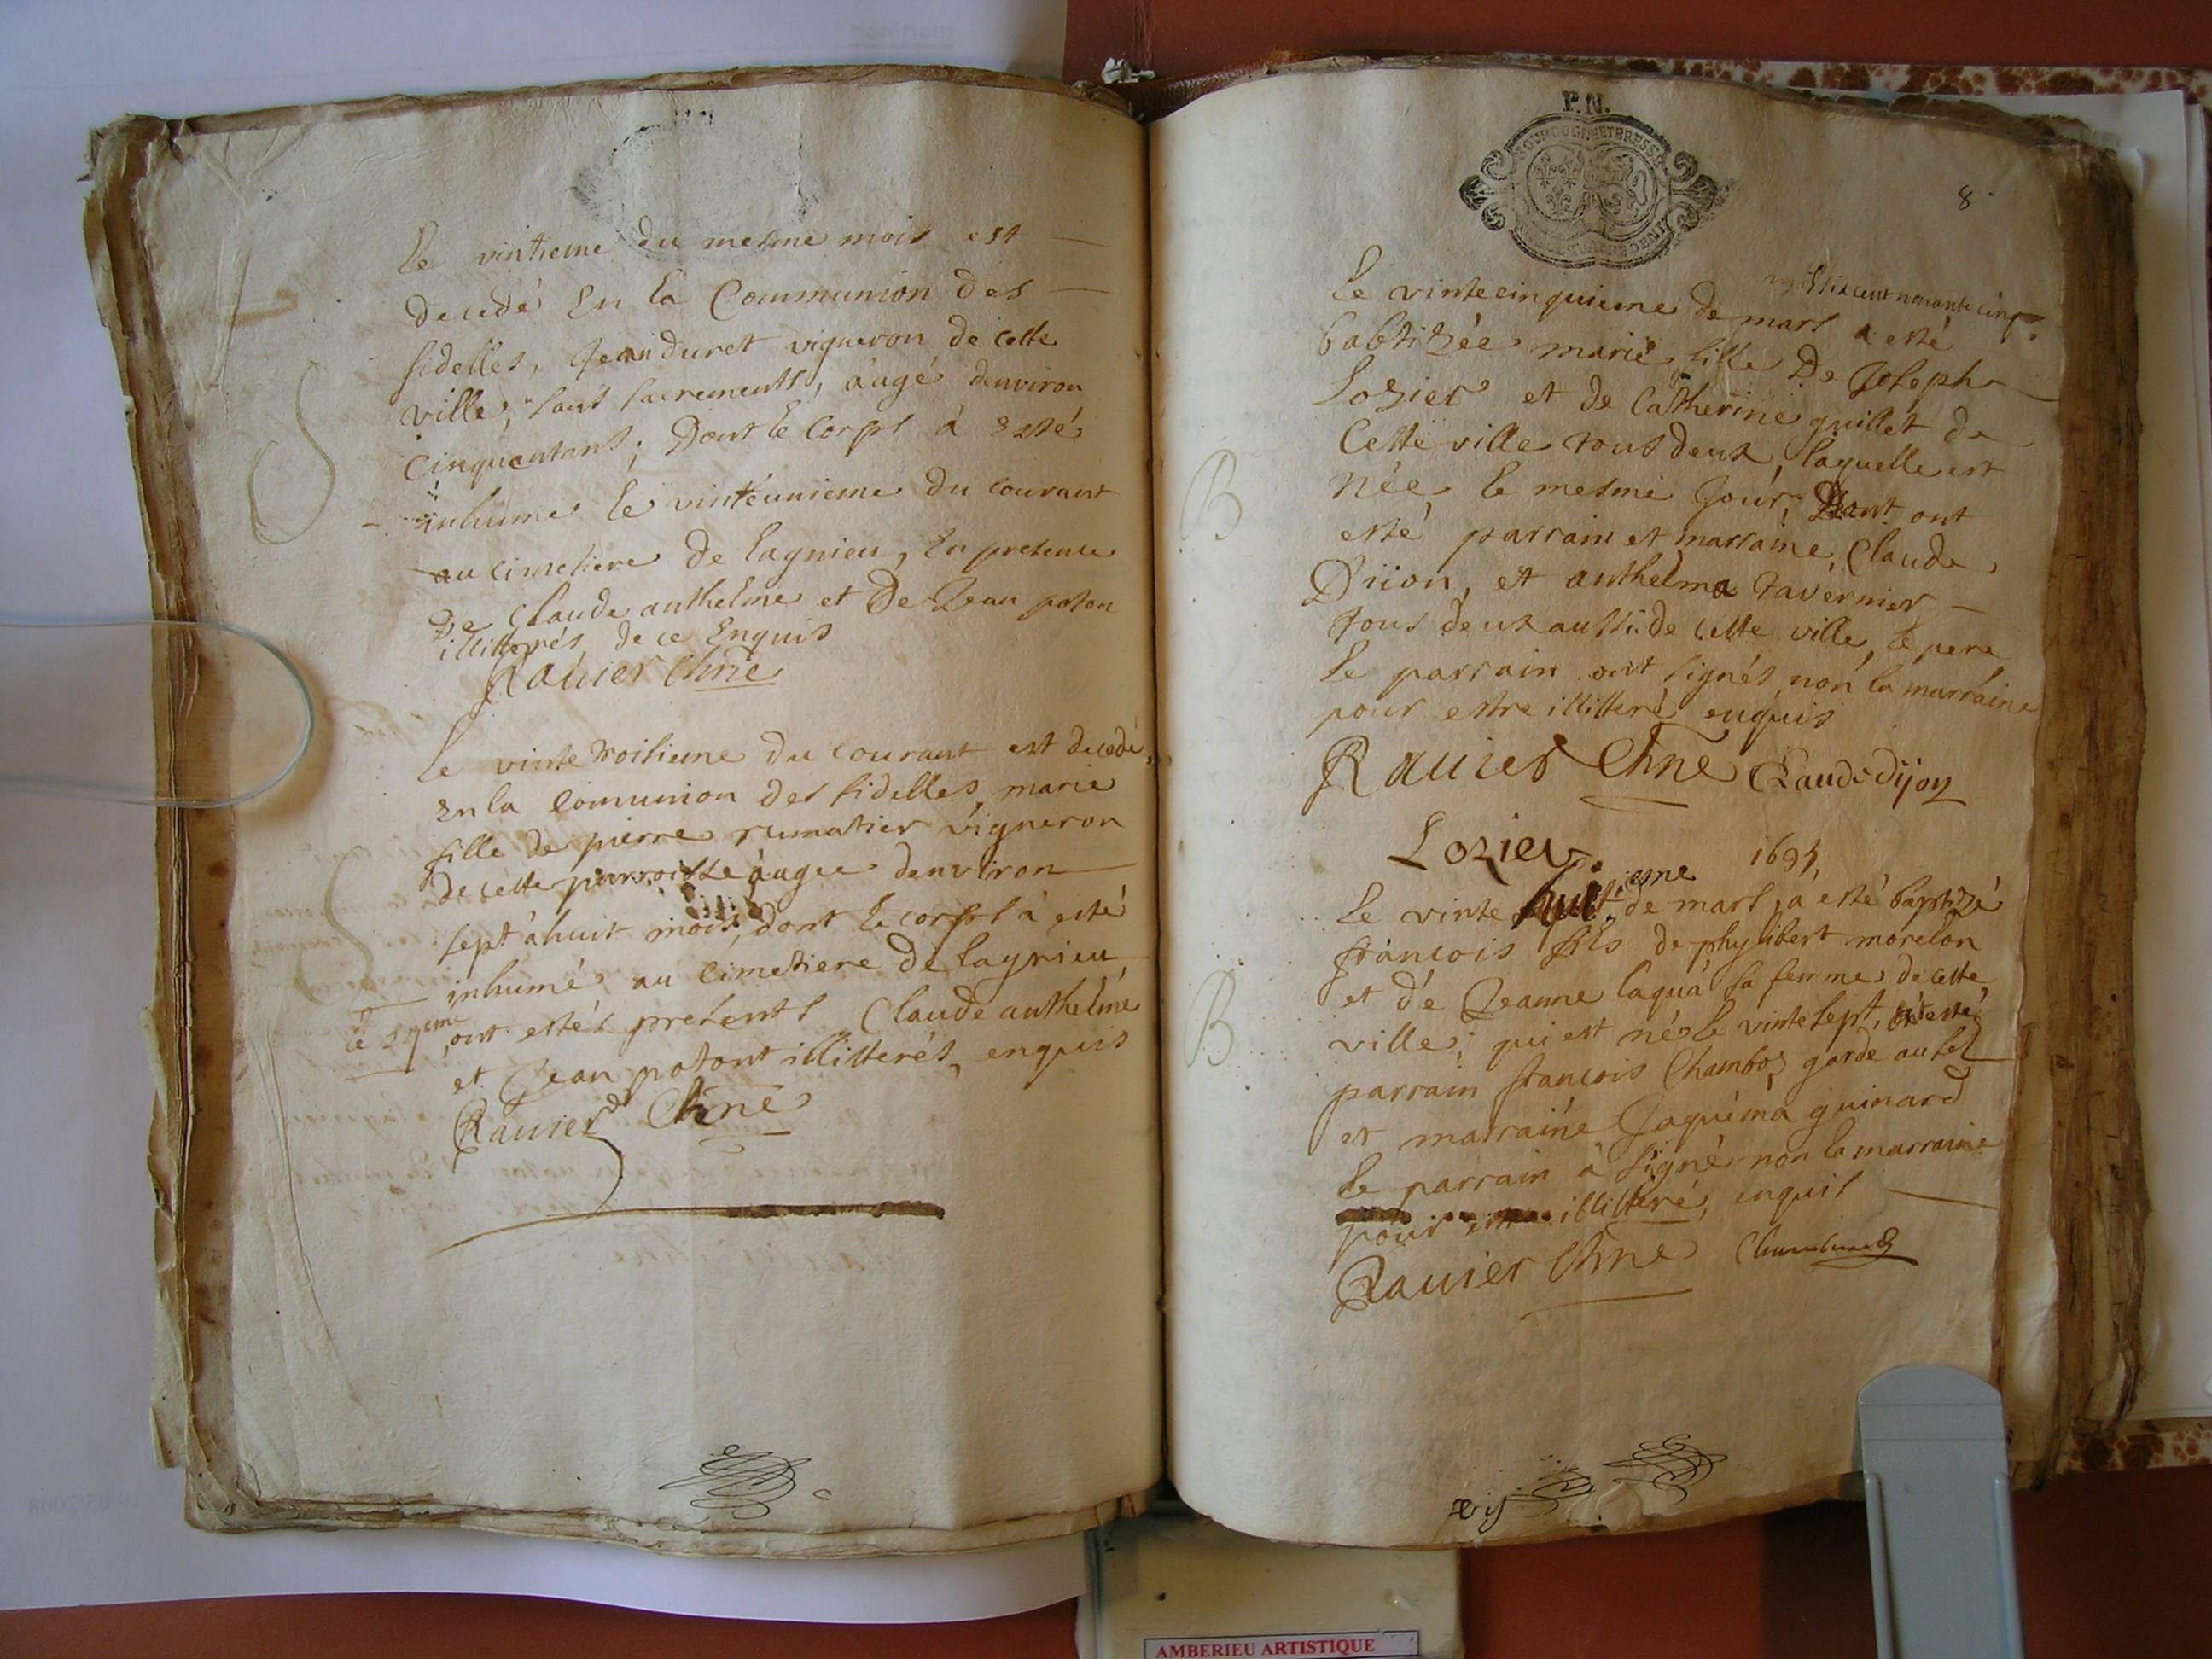 Le vintieme du mesme mois est
decedé En la Communion des
fidelles, Jean duret vigneron de cette
ville, sans sacrements, áagé denviron
Cinquantans; Dont le Corps à Esté
inhumé le vinteunieme du courant
au cimetiere de Lagnieu, En presence
De Claude anthelme et De Jean poton
illitterés de ce Enquis
Rauier Chne
Le vintetroisieme du Courant est decedé,
En la Comunion des fidelles, marie
fille de pierre vigneron
de cette parroisse áagée denviron
sept à huit mois, dont le corps à esté
inhumé au cimetiere de Lagnieu
ont estés presents Claude anthelme
et Jean potont illitterés, enquis
Rauier Chne
P.N.
BOURGOGNE ET BRESSE
8
mil six cent nonante cinq
Le vintecinquieme de mars a esté
babtizée marie fille De Joseph
Lozier et de Catherine guillet de
Cette ville tous deux, laquelle est
Née le mesme Jour, Dont ont
esté parrain et marraine, Claude
Diion, et anthelma tavernier
tous deux aussi de cette ville, le pere
le parrain ont signés, non la marraine
pour estre illitteré enquis
Rauier Chne Claude dijon
Lozier
1695,
Le vinte huitiesme de mars, à esté baptizé
françois fils de phylibert morelon
et dé Jeanne laquà sa femme de cette
ville; qui est né le vintesept, à esté
parrain francois Chambos garde au sel
et marraine Jaquéma guinard
le parrain à signé non la marraine
pour illitteré, enquis
Rauier Chne
B
B
AMBERIEU ARTISTIQUE